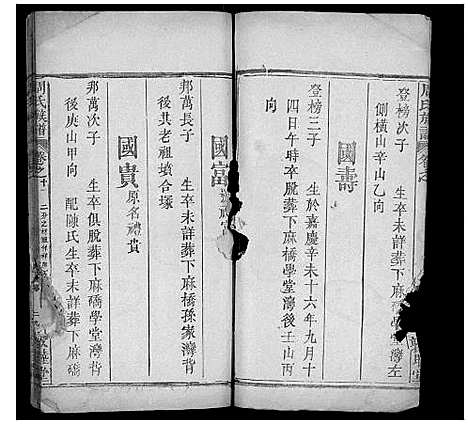 周氏族譜
卷之
登榜次子　生卒未詳葬下麻橋學堂灣左
側橫山辛山乙向
國壽
登榜三子　生於嘉慶辛未十六年九月十
四日午時卒脫葬下麻橋學堂灣後壬山丙
向
國富
邦萬長子　生卒未詳葬下麻橋孫家灣背
後其老祖墳合塚
國貴 原名禮貴
邦萬次子　生卒俱脫葬下麻橋學堂灣背
後庚山甲向　配陳氏生卒未詳葬下麻
橋學堂灣
周氏族譜
卷之